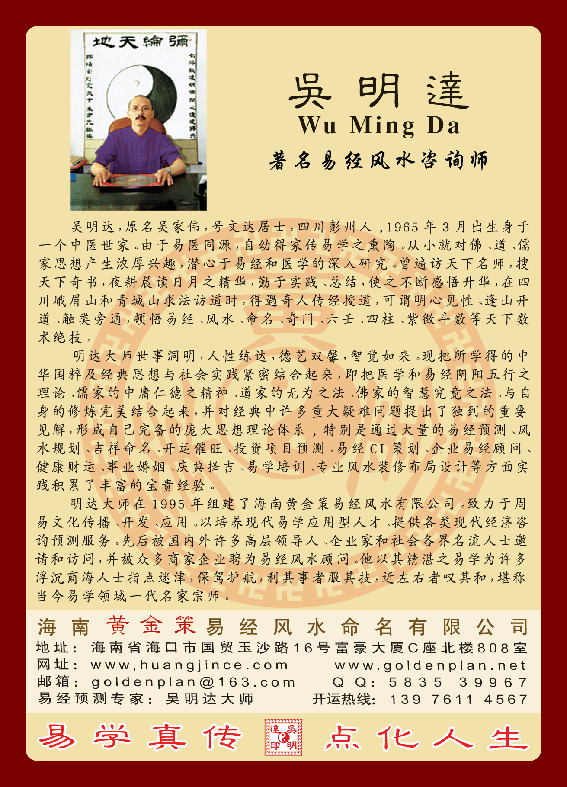 彌綸天地
吳明達
Wu Ming Da
著名易经风水咨询师
吴明达,原名吴家伟,号文达居士,四川彭州人,1965年3月出生身于
一个中医世家。由于易医同源,自幼得家传易学之熏陶。从小就对佛、道、儒
家思想产生浓厚兴趣,潜心于易经和医学的深入研究。曾遍访天下名师,搜
天下奇书,夜耕晨读日月之精华,勤于实践、总结,使之不断感悟升华,在四
川峨眉山和青城山求法访道时,得遇奇人传经授道,可谓明心见性、逢山开
道、触类旁通,顿悟易经、风水、命名、奇门、六壬、四柱、紫微斗数等天下数
术绝技。
明达大师世事洞明,人性练达,德艺双馨,智觉如来。现把所学得的中
华国粹及经典思想与社会实践紧密结合起来,即把医学和易经阴阳五行之
理论、儒家的中庸仁德之精神、道家的无为之法、佛家的智慧究竟之法、与自
身的修炼完美结合起来,并对经典中许多重大疑难问题提出了独到的重要
见解,形成自己完备的庞大思想理论体系,特别是通过大量的易经预测、风
水规划、吉祥命名、开运催旺、投资项目预测、易经CI策划、企业易经顾问、
健康财运、事业婚姻、庆典择吉、易学培训、专业风水装修布局设计等方面实
践积累了丰富的宝贵经验。
明达大师在1995年组建了海南黄金策易经风水有限公司,致力于周
易文化传播、开发、应用。以培养现代易学应用型人才、提供各类现代经济咨
询预测服务。先后被国内外许多高层领导人、企业家和社会各界名流人士邀
请和访问,并被众多商家企业聘为易经风水顾问。他以其精湛之易学为许多
浮沉商海人士指点迷津,保驾护航,利其事者服其技,近左右者叹其和,堪称
当今易学领域一代名家宗师。
海南黄金策易经风水命名有限公司
地址:海南省海口市国贸玉沙路16号富豪大厦C座北楼808室
网址:www.huangjince.com www.goldenplan.net
邮箱:goldenplan@163.com QQ:5835 39967
易经预测专家:吴明达大师 开运热线:139 7611 4567
易学真传 吳明達印 点化人生